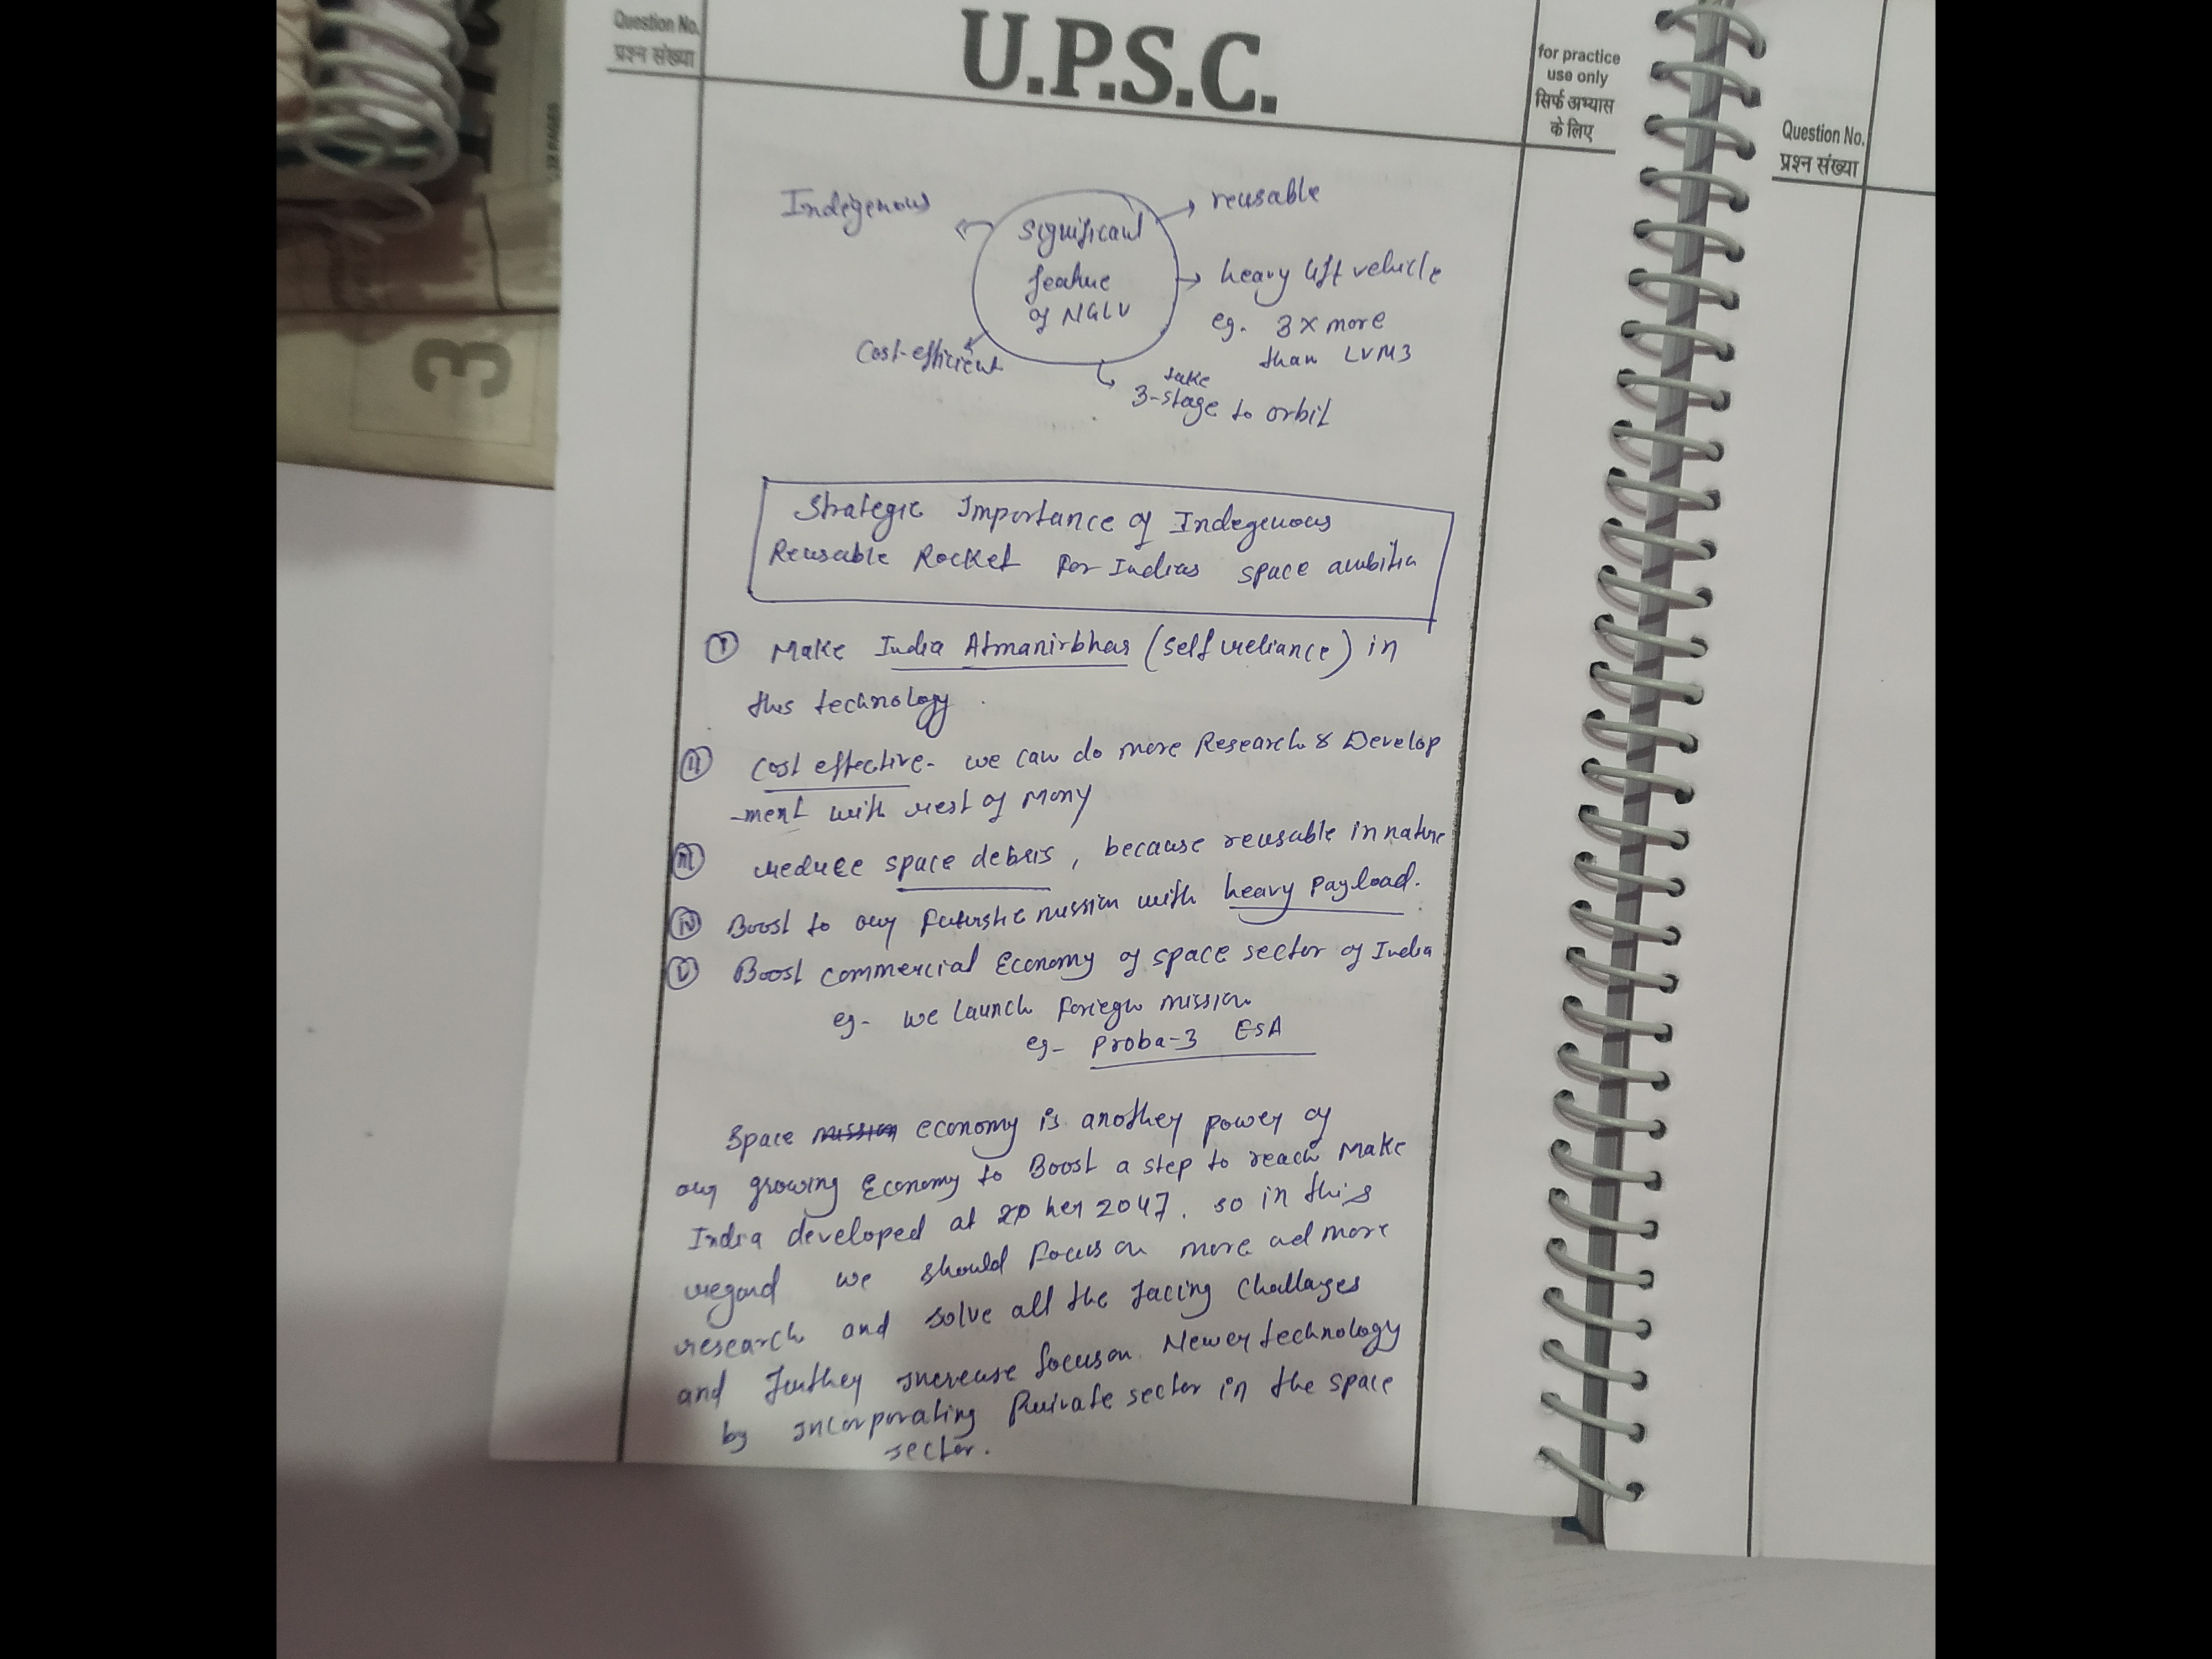 Question No.
प्रश्न संख्या
U.P.S.C.
for practice
use only
सिर्फ अभ्यास
के लिए
Question No.
प्रश्न संख्या
3
Indegenous
significant
feature
of NGLV
reusable
heavy lift vehicle
eg. 3x more
than LVM3
Cost-efficient
take
3-stage to orbit
Strategic Importance of Indegenous
Reusable Rocket for Indias space ambitia
I Make India Atmanirbhar (self reliance) in
this technology.
II Cost effective- we can do more Research & Develop
-ment with rest of Mony
III reduce space debris, because reusable in nature
iv Boost to our futuristic mission with heavy payload.
v Boost commercial Economy of space sector of India
eg- we launch foriegn mission
eg- Proba-3 ESA
Space mission economy is another power of
our growing Economy to Boost a step to reach Make
India developed at 2047. so in this
regard we should focus on more ad more
research and solve all the facing challages
and further increase focus on Newer technology
by incorporating Private sector in the space
sector.